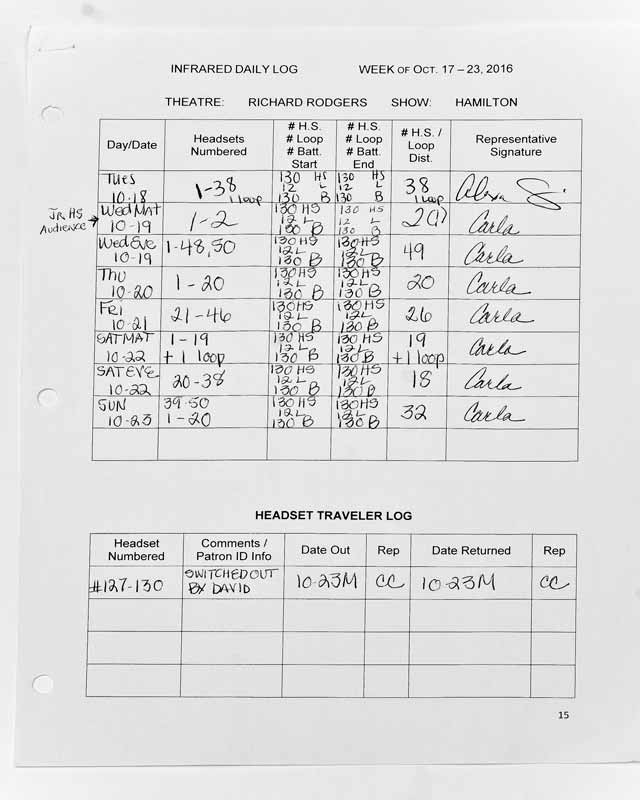 INFRARED DAILY LOG WEEK OF OCT. 17 – 23, 2016
THEATRE: RICHARD RODGERS SHOW: HAMILTON
Day/Date Headsets Numbered # H.S. # Loop # Batt. Start # H.S. # Loop # Batt. End # H.S. / Loop Dist. Representative Signature
TUES 10-18 1-38 1 loop 130 HS 12 L 130 B 130 HS 12 L 130 B 38 1 loop Alexa
JR. HS Audience → Wed MAT 10-19 1-2 130 HS 12 L 130 B 130 HS 12 L 130 B 2(1) Carla
Wed Eve 10-19 1-48, 50 130 HS 12 L 130 B 130 HS 12 L 130 B 49 Carla
Thu 10-20 1-20 130 HS 12 L 130 B 130 HS 12 L 130 B 20 Carla
FRI 10-21 21-46 130 HS 12 L 130 B 130 HS 12 L 130 B 26 Carla
SAT MAT 10-22 1-19 + 1 loop 130 HS 12 L 130 B 130 HS 12 L 130 B 19 + 1 loop Carla
SAT EVE 10-22 20-38 130 HS 12 L 130 B 130 HS 12 L 130 B 18 Carla
SUN 10-23 39-50 1-20 130 HS 12 L 130 B 130 HS 12 L 130 B 32 Carla
HEADSET TRAVELER LOG
Headset Numbered Comments / Patron ID Info Date Out Rep Date Returned Rep
#127-130 SWITCHED OUT BY DAVID 10-23M CC 10-23M CC
15